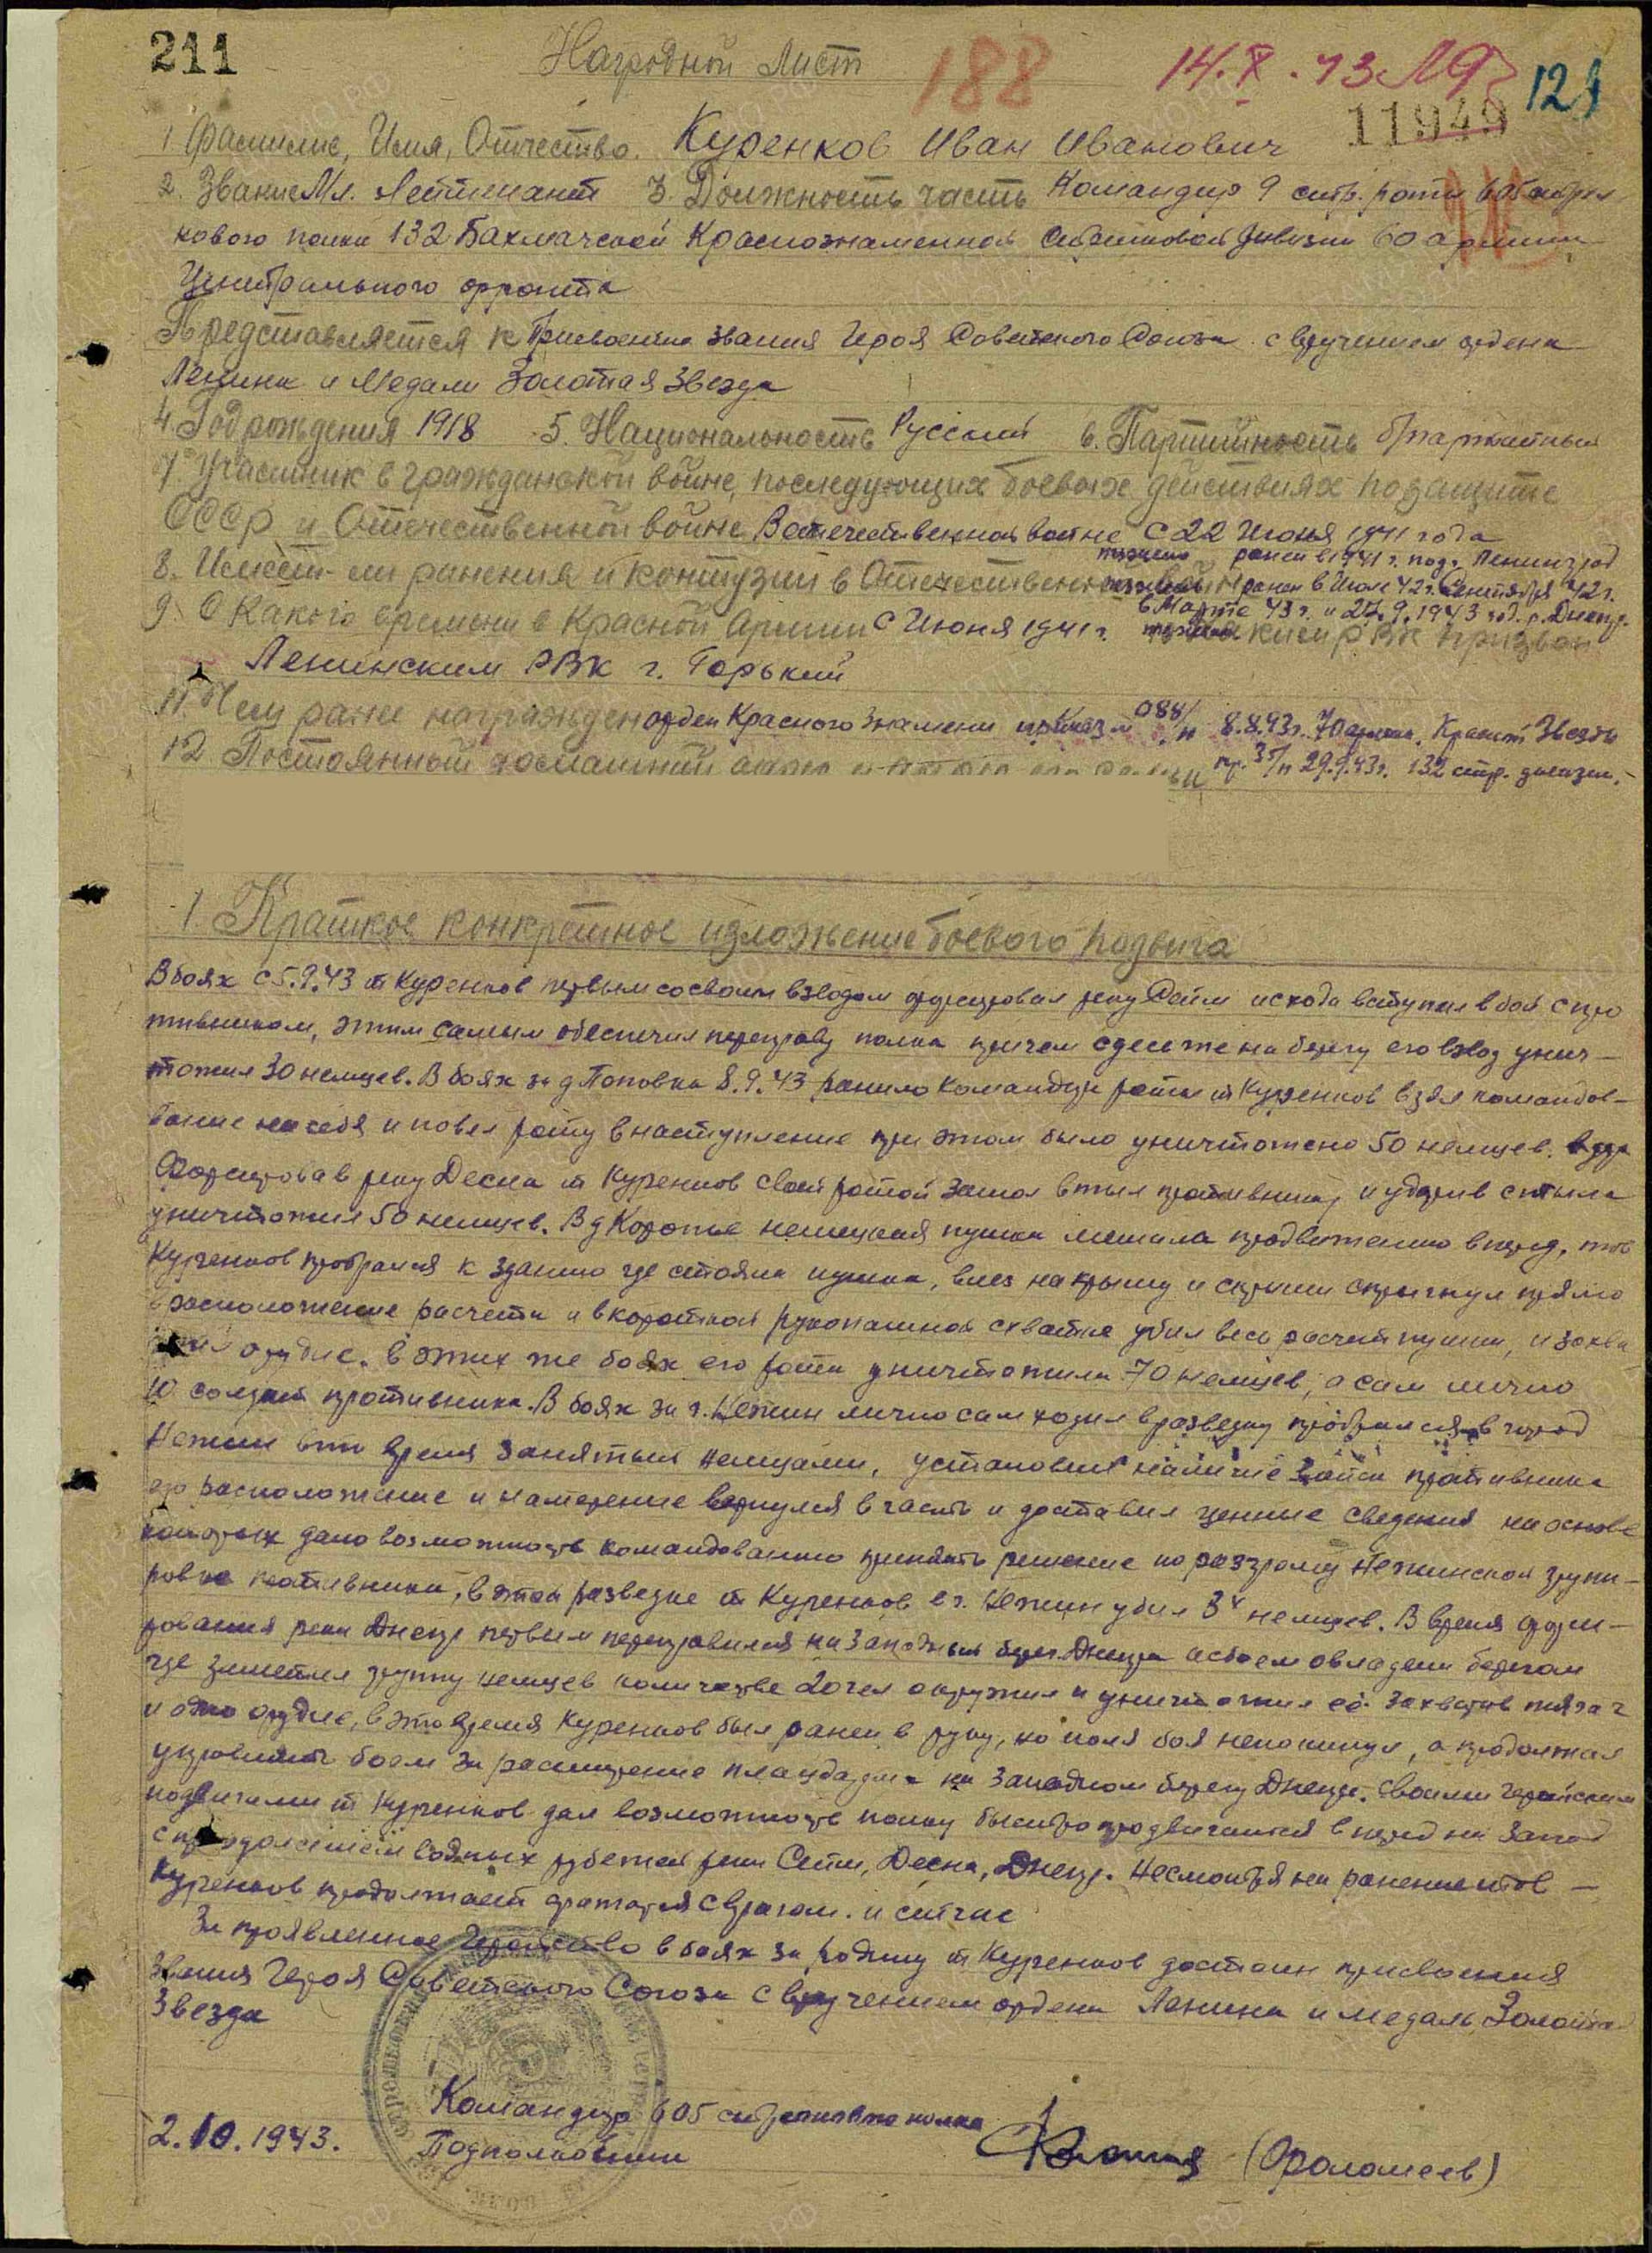 211
Наградной Лист
188
14.X.43
129
11949
1. Фамилие, Имя, Отчество. Куренков Иван Иванович
2. Звание Мл. Лейтенант 3. Должность часть Командир 9 стр. роты 605 стрел
кового полка 132 Бахмачской Краснознаменной Стрелковой дивизии 60 армии
Центрального фронта
Представляется к Присвоению звания Героя Советского Союза с вручением ордена
Ленина и Медали Золотая Звезда
4. Год рождения 1918 5. Национальность Русский 6. Партийность б/партийный
7. Участник в гражданской войне, последующих боевых действиях по защите
СССР и Отечественной войне В отечественной войне с 22 Июня 1941 года
8. Имеет-ли ранения и контузии в Отечественной войне тяжело ранен в 1941 г. под г. Ленинград
ранен в Июле 42 г. Сентября 42 г.
в Марте 43 г. и 27.9.1943 год. р. Днепр.
9. С Какого времени в Красной Армии с Июня 1941 г. каким РВК призван
Ленинским РВК г. Горький
11. Чем ранее награжден орден Красного Знамени приказ № 088/н 8.8.43 г. 70 армии. Красной Звезды
пр. 35/н 29.9.43 г. 132 стр. дивизии.
12 Постоянный домашний адрес
1. Краткое конкретное изложение боевого подвига
В боях с 5.9.43 т Куренков первым со своим взводом форсировал реку Сейм и схода вступил в бой с про
тивником, этим самым обеспечил переправу полка причем сдесь же на берегу его взвод унич-
тожил 30 немцев. В боях за д Поповка 8.9.43 ранило командира роты т Куренков взял командов-
вание на себя и повел роту в наступление при этом было уничтожено 50 немцев.
Форсировав реку Десна т Куренков своей ротой зашол в тыл противнику и ударив с тыла
уничтожил 50 немцев. В д Коропье немецкая пушка мешала продвижению вперед, тов
Куренков пробрался к зданию где стояла пушка, влез на крышу и с крыши спрыгнул прямо
в расположение расчета и в короткой рукопашной схватке убил весь расчет пушки, и захва
тил орудие. в этих же боях его рота уничтожила 70 немцев, а сам лично
10 солдат противника. В боях за г. Нежин лично сам ходил в разведку пробрался в город
Нежин в то время занятый немцами, установил наличие войск противника
его расположение и намерение вернулся в часть и доставил ценные сведения на основе
которых дало возможность командованию принять решение по разгрому Нежинской групи-
ровки противника, в этой разведке т Куренков в г. Нежин убил 3х немцев. В время форси-
рования реки Днепр первым переправился на Западный берег Днепра и с боем овладел берегом
где заметил группу немцев количестве 20 чел окружил и уничтожил её. захватив тягач
и одно орудие, в это время Куренков был ранен в руку, но поля боя не покинул, а продолжал
управлять боем за расширение плацдарма на Западном берегу Днепр. Своими геройскими
подвигами т Куренков дал возможность полку быстро продвигатся в перед на Запад
с преодолением водных рубежей реки Сейм, Десна, Днепр. Несмотря на ранение тов-
Куренков продолжает дратся с врагом. и сейчас
За проявленное Геройство в боях за Родину т Куренков достоин присвоения
Звания Героя Советского Союза с вручением ордена Ленина и медаль Золотая
Звезда
Командир 605 стрелкового полка
2.10.1943. Подполковник (Фроломеев)